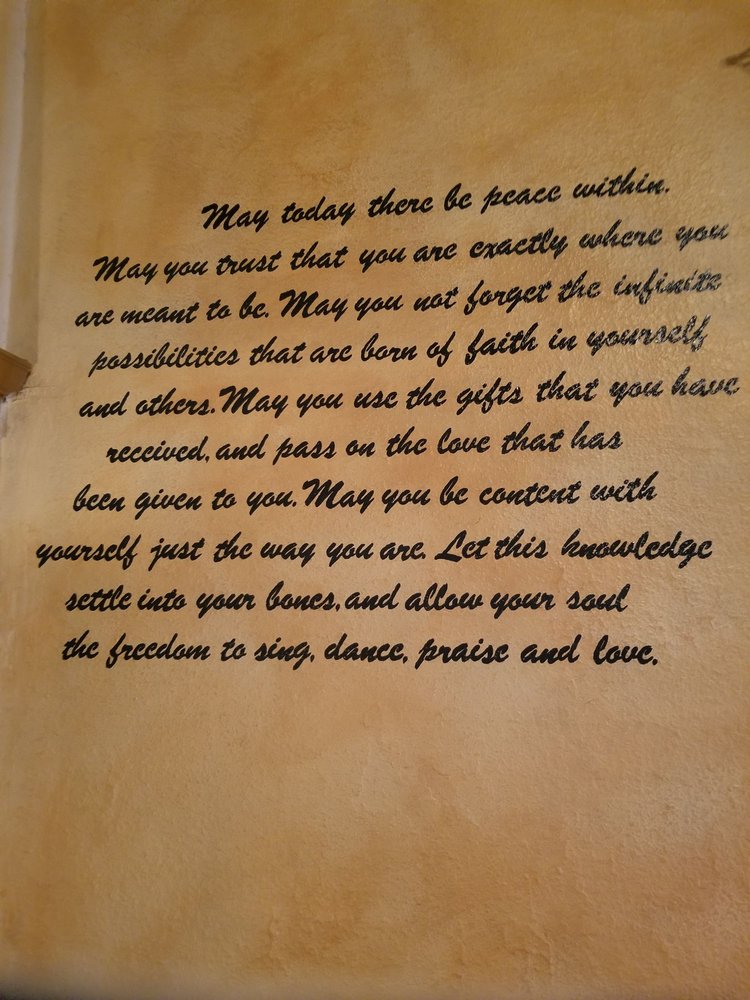 May today there be peace within.
May you trust that you are exactly where you
are meant to be. May you not forget the infinite
possibilities that are born of faith in yourself
and others. May you use the gifts that you have
received, and pass on the love that has
been given to you. May you be content with
yourself just the way you are. Let this knowledge
settle into your bones, and allow your soul
the freedom to sing, dance, praise and love.